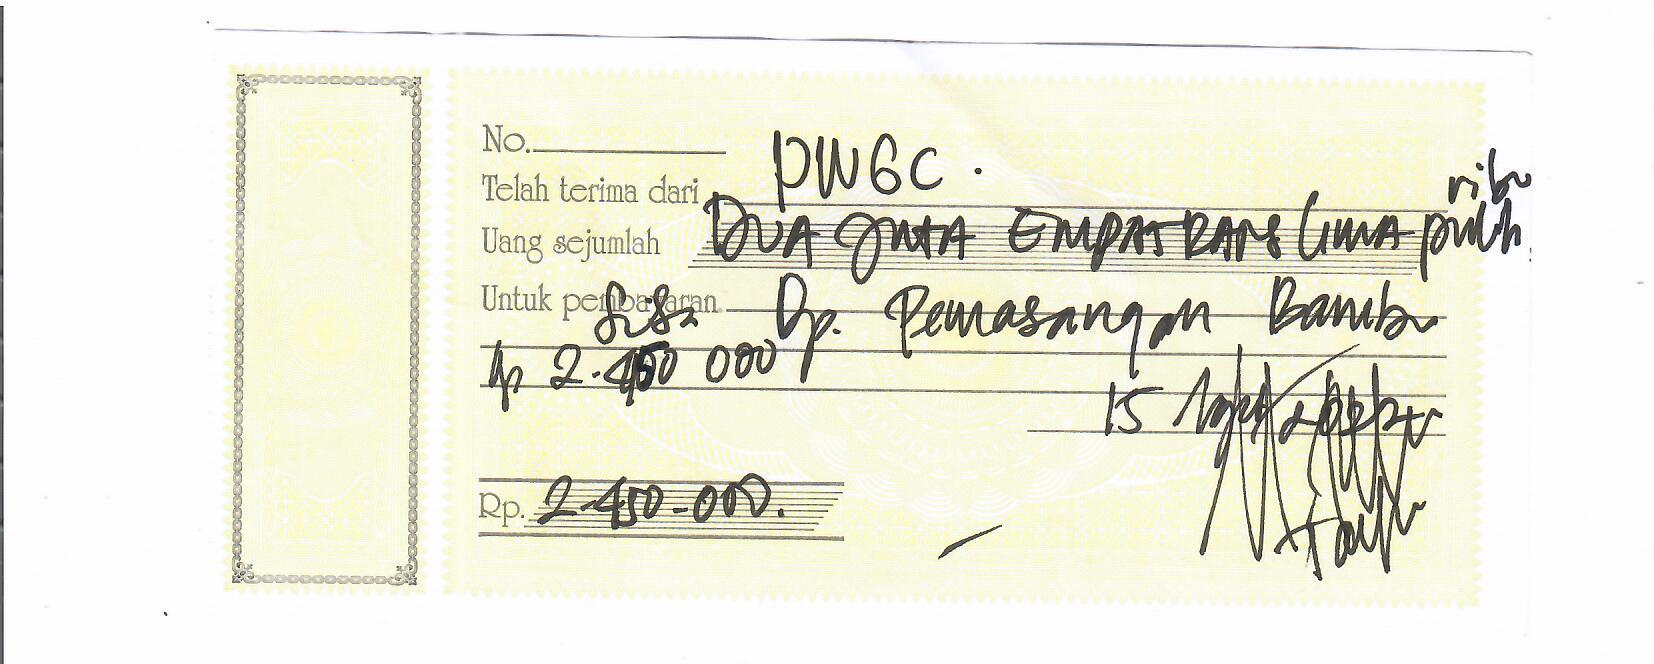 No.
Telah terima dari PWGC.
Uang sejumlah DUA JUTA EMPATRATUS LIMA puluh ribu
Untuk pembayaran Sisa Dp. Pemasangan Bambu
Rp 2.450 000
15
Rp. 2.450.000.